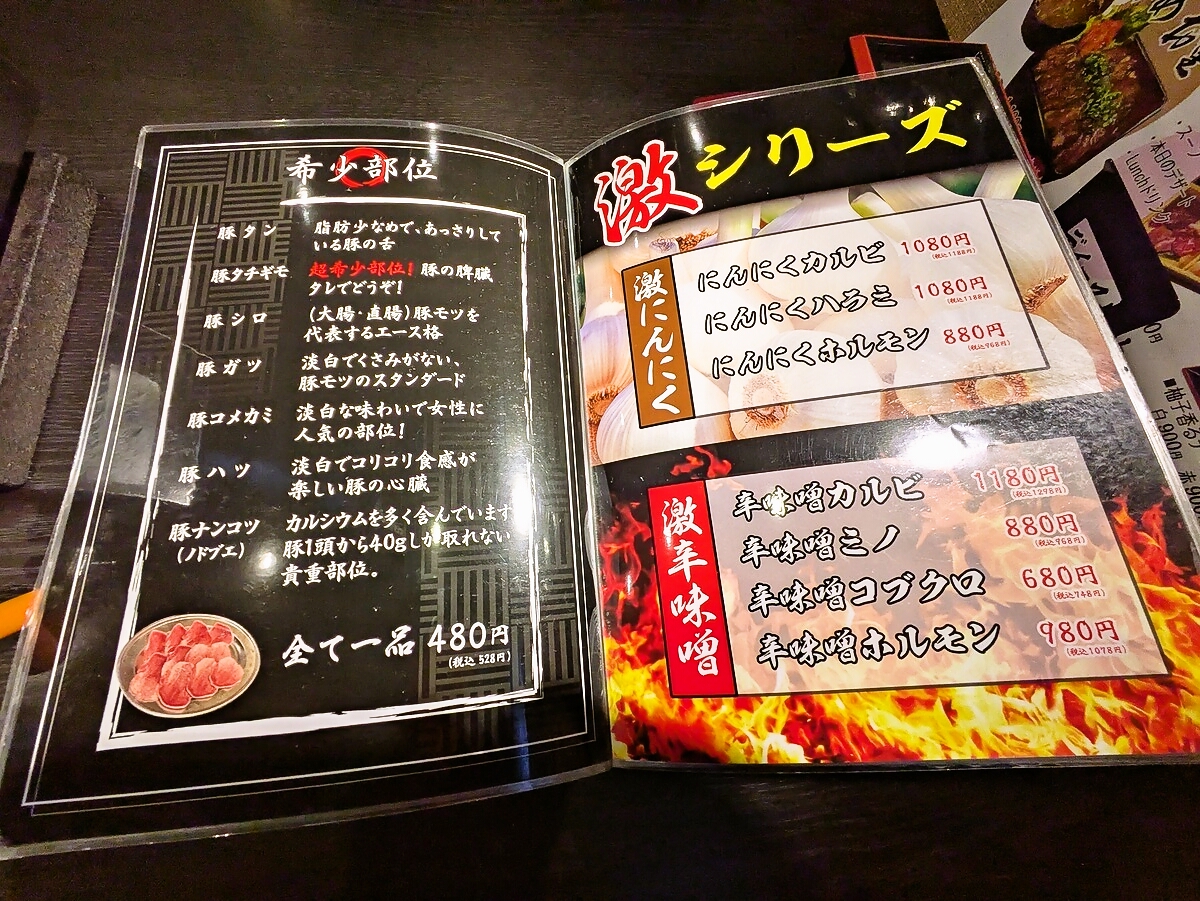 希少部位
豚タン
脂肪少なめで、あっさりして
いる豚の舌
豚タチギモ
超希少部位!豚の脾臓
タレでどうぞ!
豚シロ
(大腸・直腸)豚モツを
代表するエース格
豚ガツ
淡白でくさみがない、
豚モツのスタンダード
豚コメカミ
淡白な味わいで女性に
人気の部位!
豚ハツ
淡白でコリコリ食感が
楽しい豚の心臓
豚ナンコツ
(ノドブエ)
カルシウムを多く含んでいます
豚1頭から40gしか取れない
貴重部位。
全て一品 480円
(税込 528円)
激シリーズ
激にんにく
にんにくカルビ 1080円
(税込1188円)
にんにくハラミ 1080円
(税込1188円)
にんにくホルモン 880円
(税込968円)
激辛味噌
辛味噌カルビ 1180円
(税込1298円)
辛味噌ミノ 880円
(税込968円)
辛味噌コブクロ 680円
(税込748円)
辛味噌ホルモン 980円
(税込1078円)
本日のデザート
■柚子香る